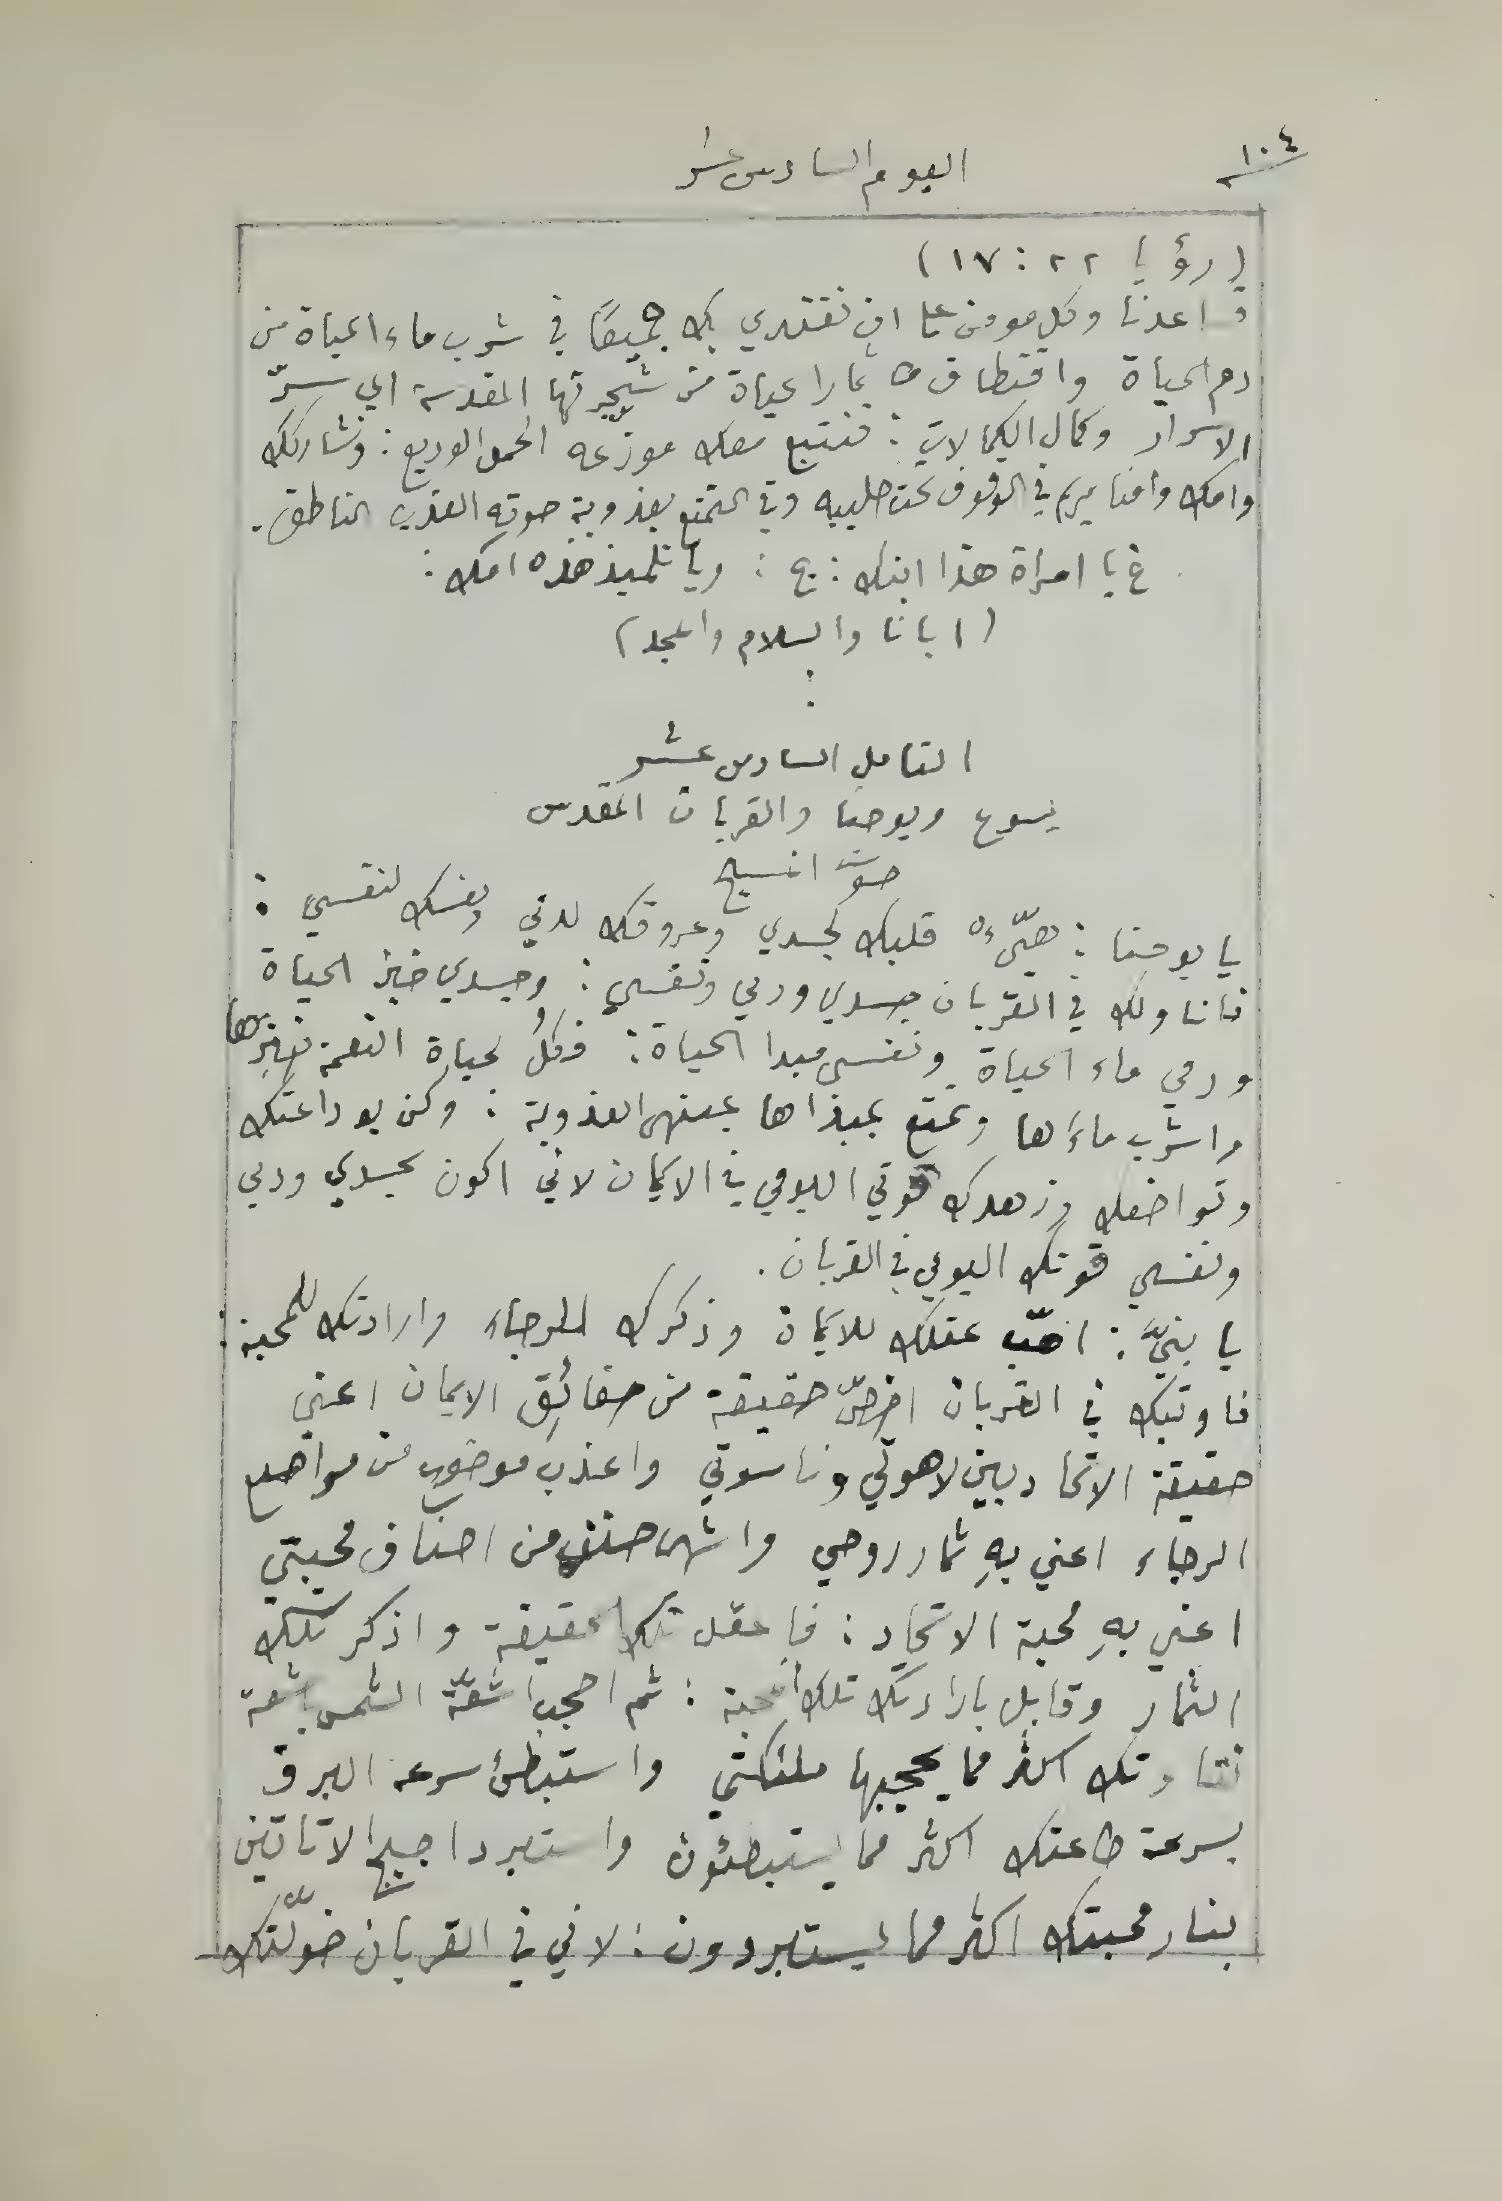 ١٠٤
اليوم السادس عشر
(رؤيا ٢٢ : ١٧)
فساعدنا وكل مومن على ان نقتدي بك جميعًا في شرب ماء الحياة من
دم الحياة واقتطاف ثمار الحياة من شجرتها المقدسة اي سرّ
الاسرار وكمال الكمالات : فنتبع معك الحمل الوديع : ونشاركك
وامك وامنا مريم في الوقوف تحت صليبه وفي التمتع بعذوبة صوته العذب الناطق .
غ يا امراة هذا ابنك : ج : ويا تلميذ هذه امك :
(ابانا والسلام والمجد)
التامل السادس عشر
يسوع ويوحنا والقربان المقدس
صوت المسيح
يا يوحنا : هيّء قلبك لجسدي وعروقك لدمي ونفسك لنفسي :
فاناولك في القربان جسدي ودمي ونفسي : وجسدي خبز الحياة
ودمي ماء الحياة ونفسي مبدا الحياة : فكل لحياة النعمة خبزها
واشرب ماءها وتمتع بمبداها بمنتهى العذوبة : وكن بوداعتك
وتواضعك وزهدك قوتي اليومي في الايمان لاني اكون بجسدي ودمي
ونفسي قوتك اليومي في القربان .
يا بنيّ : اهّب عقلك للايمان وذكرك للرجاء وارادتك للمحبة :
فاوتيك في القربان اخصّ حقيقة من حقائق الايمان اعني
حقيقة الاتحاد بين لاهوتي وناسوتي واعذب موضوع من مواضيع
الرجاء اعني بهِ ثمار روحي واشهى صنف من اصناف محبتي
اعني بهِ محبة الاتحاد : فاعقل تلك الحقيقة واذكر تلك
الثمار وقابل بارادتك تلك المحبة : ثم احجب اشعّة الشمس باشعة
نقاوتك اكثر مما يحجبها ملئكتي واستبطئ سرعة البرق
بسرعة طاعتك اكثر مما يستبطئون واستبرد اجيج الاتاتين
بنار محبتك اكثر مما يستبردون : لاني في القربان خوّلتك